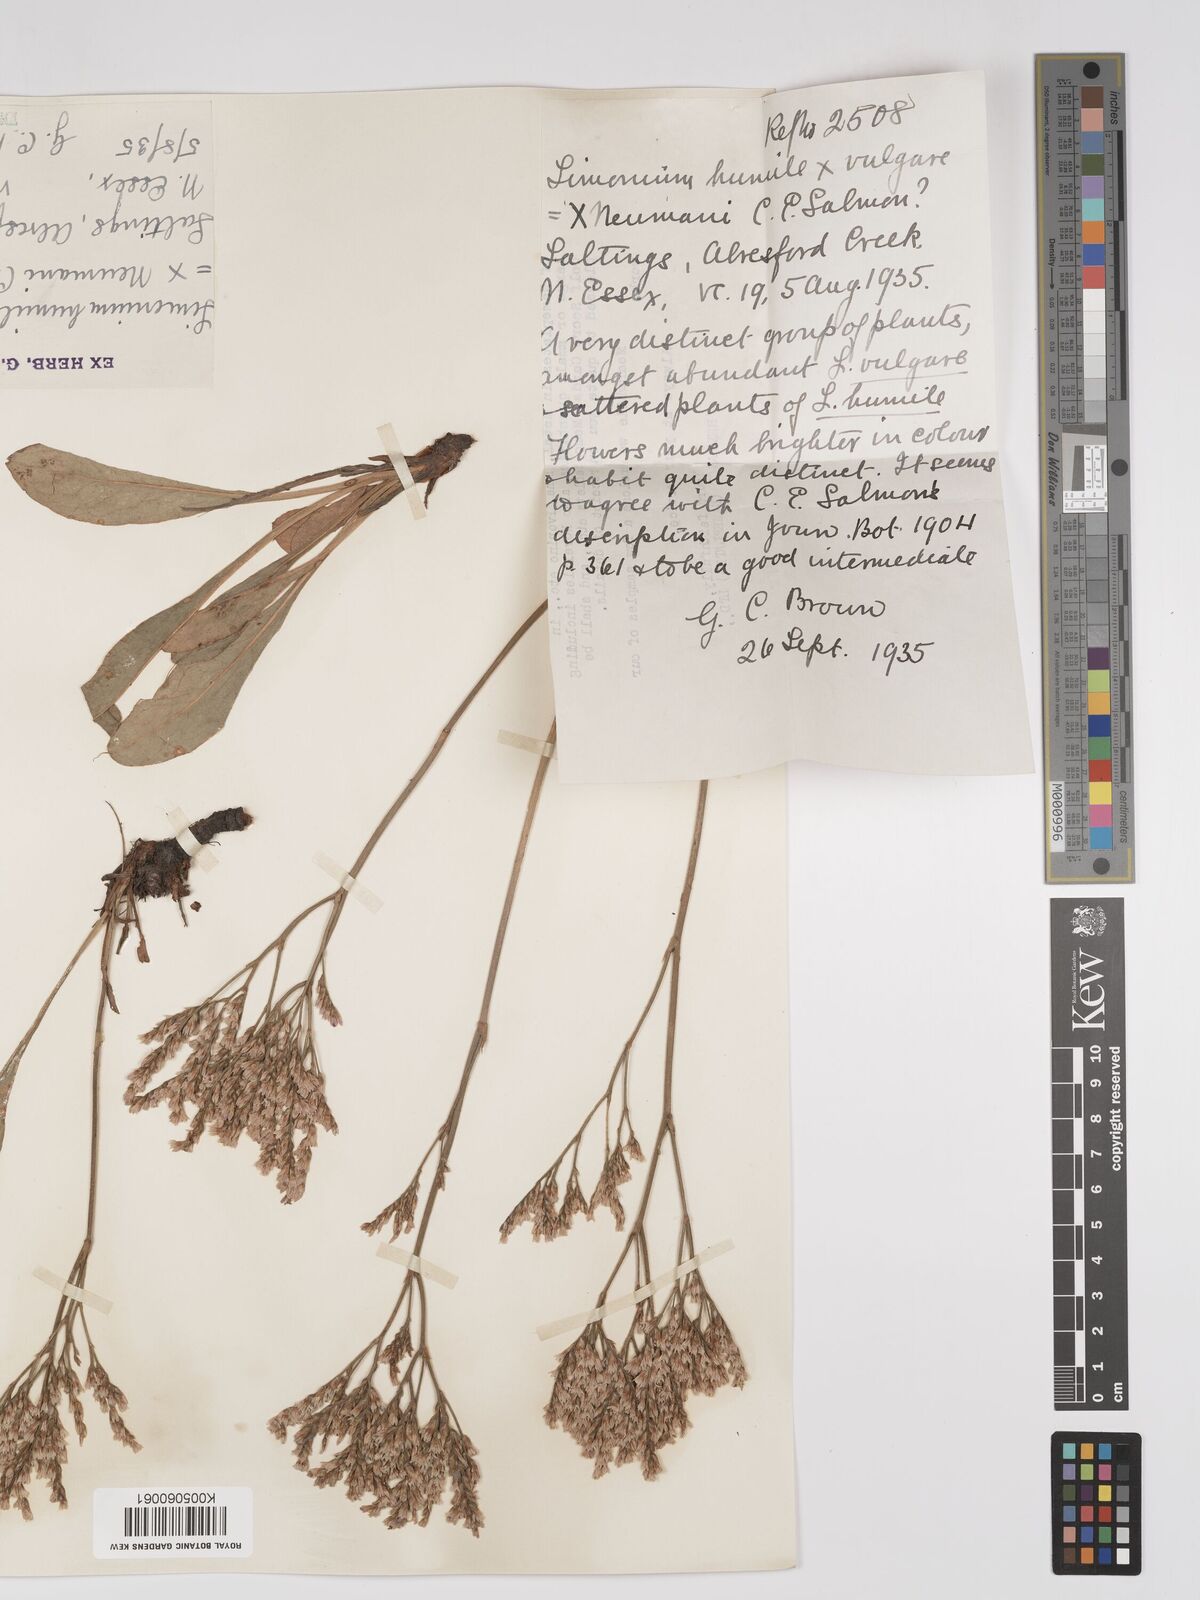 Ref No 2508
Limonium humile x vulgare
= X Neumani C. E. Salmon?
Saltings, Alresford Creek
N. Essex, vc. 19, 5 Aug. 1935.
A very distinct group of plants,
amongst abundant L. vulgare
scattered plants of L. humile
Flowers much brighter in colour
habit quite distinct. It seems
to agree with C. E. Salmon's
description in Journ. Bot. 1904
p 361 & to be a good intermediate
G. C. Brown
26 Sept. 1935
EX HERB. G.
Limonium humil
= X Neumani C
Saltings, Alresf
N. Essex,
5/8/35
G. C.
K005060061
ROYAL BOTANIC GARDENS KEW
inches
centimetres
Don Williams
M000996
Kew
Royal Botanic Gardens
0 1 2 3 4 5 6 7 8 9 10
cm
copyright reserved